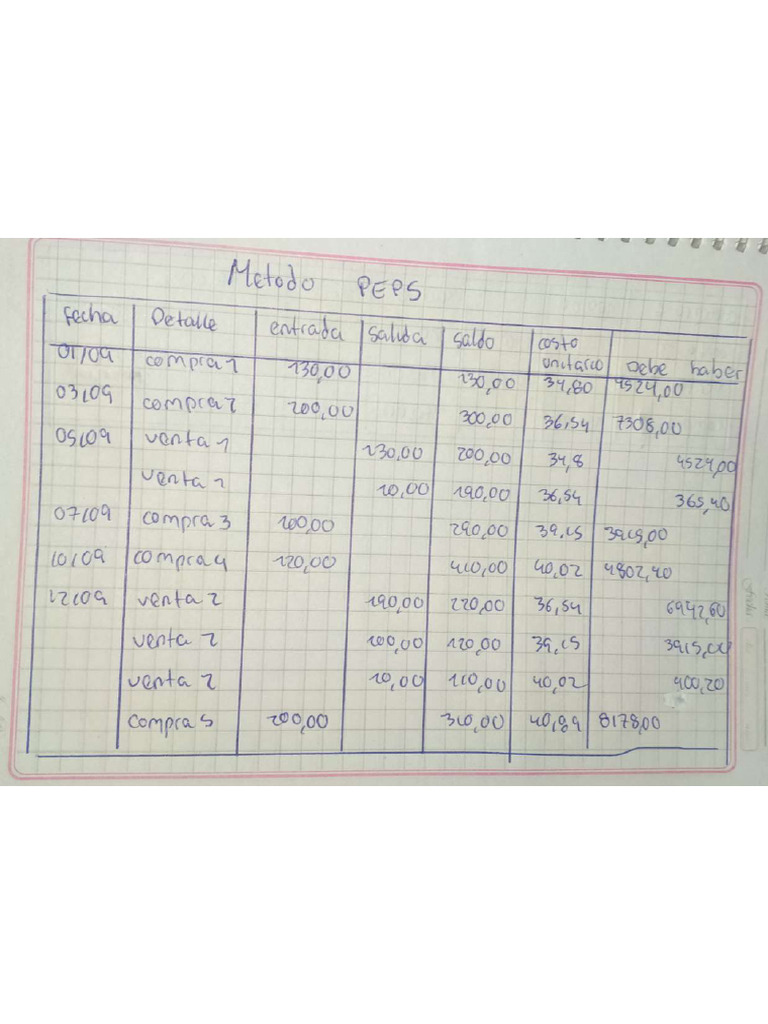 Metodo PEPS
fecha Detalle entrada salida saldo costo unitario Debe haber
01/09 compra 1 130,00 130,00 34,80 4524,00
03/09 compra 2 200,00 300,00 36,54 7308,00
05/09 venta 1 130,00 200,00 34,8 4524,00
venta 1 10,00 190,00 36,54 365,40
07/09 compra 3 100,00 290,00 39,15 3915,00
10/09 compra 4 120,00 410,00 40,02 4802,40
12/09 venta 2 190,00 220,00 36,54 6942,60
venta 2 100,00 120,00 39,15 3915,00
venta 2 10,00 110,00 40,02 400,20
compra 5 200,00 310,00 40,89 8178,00